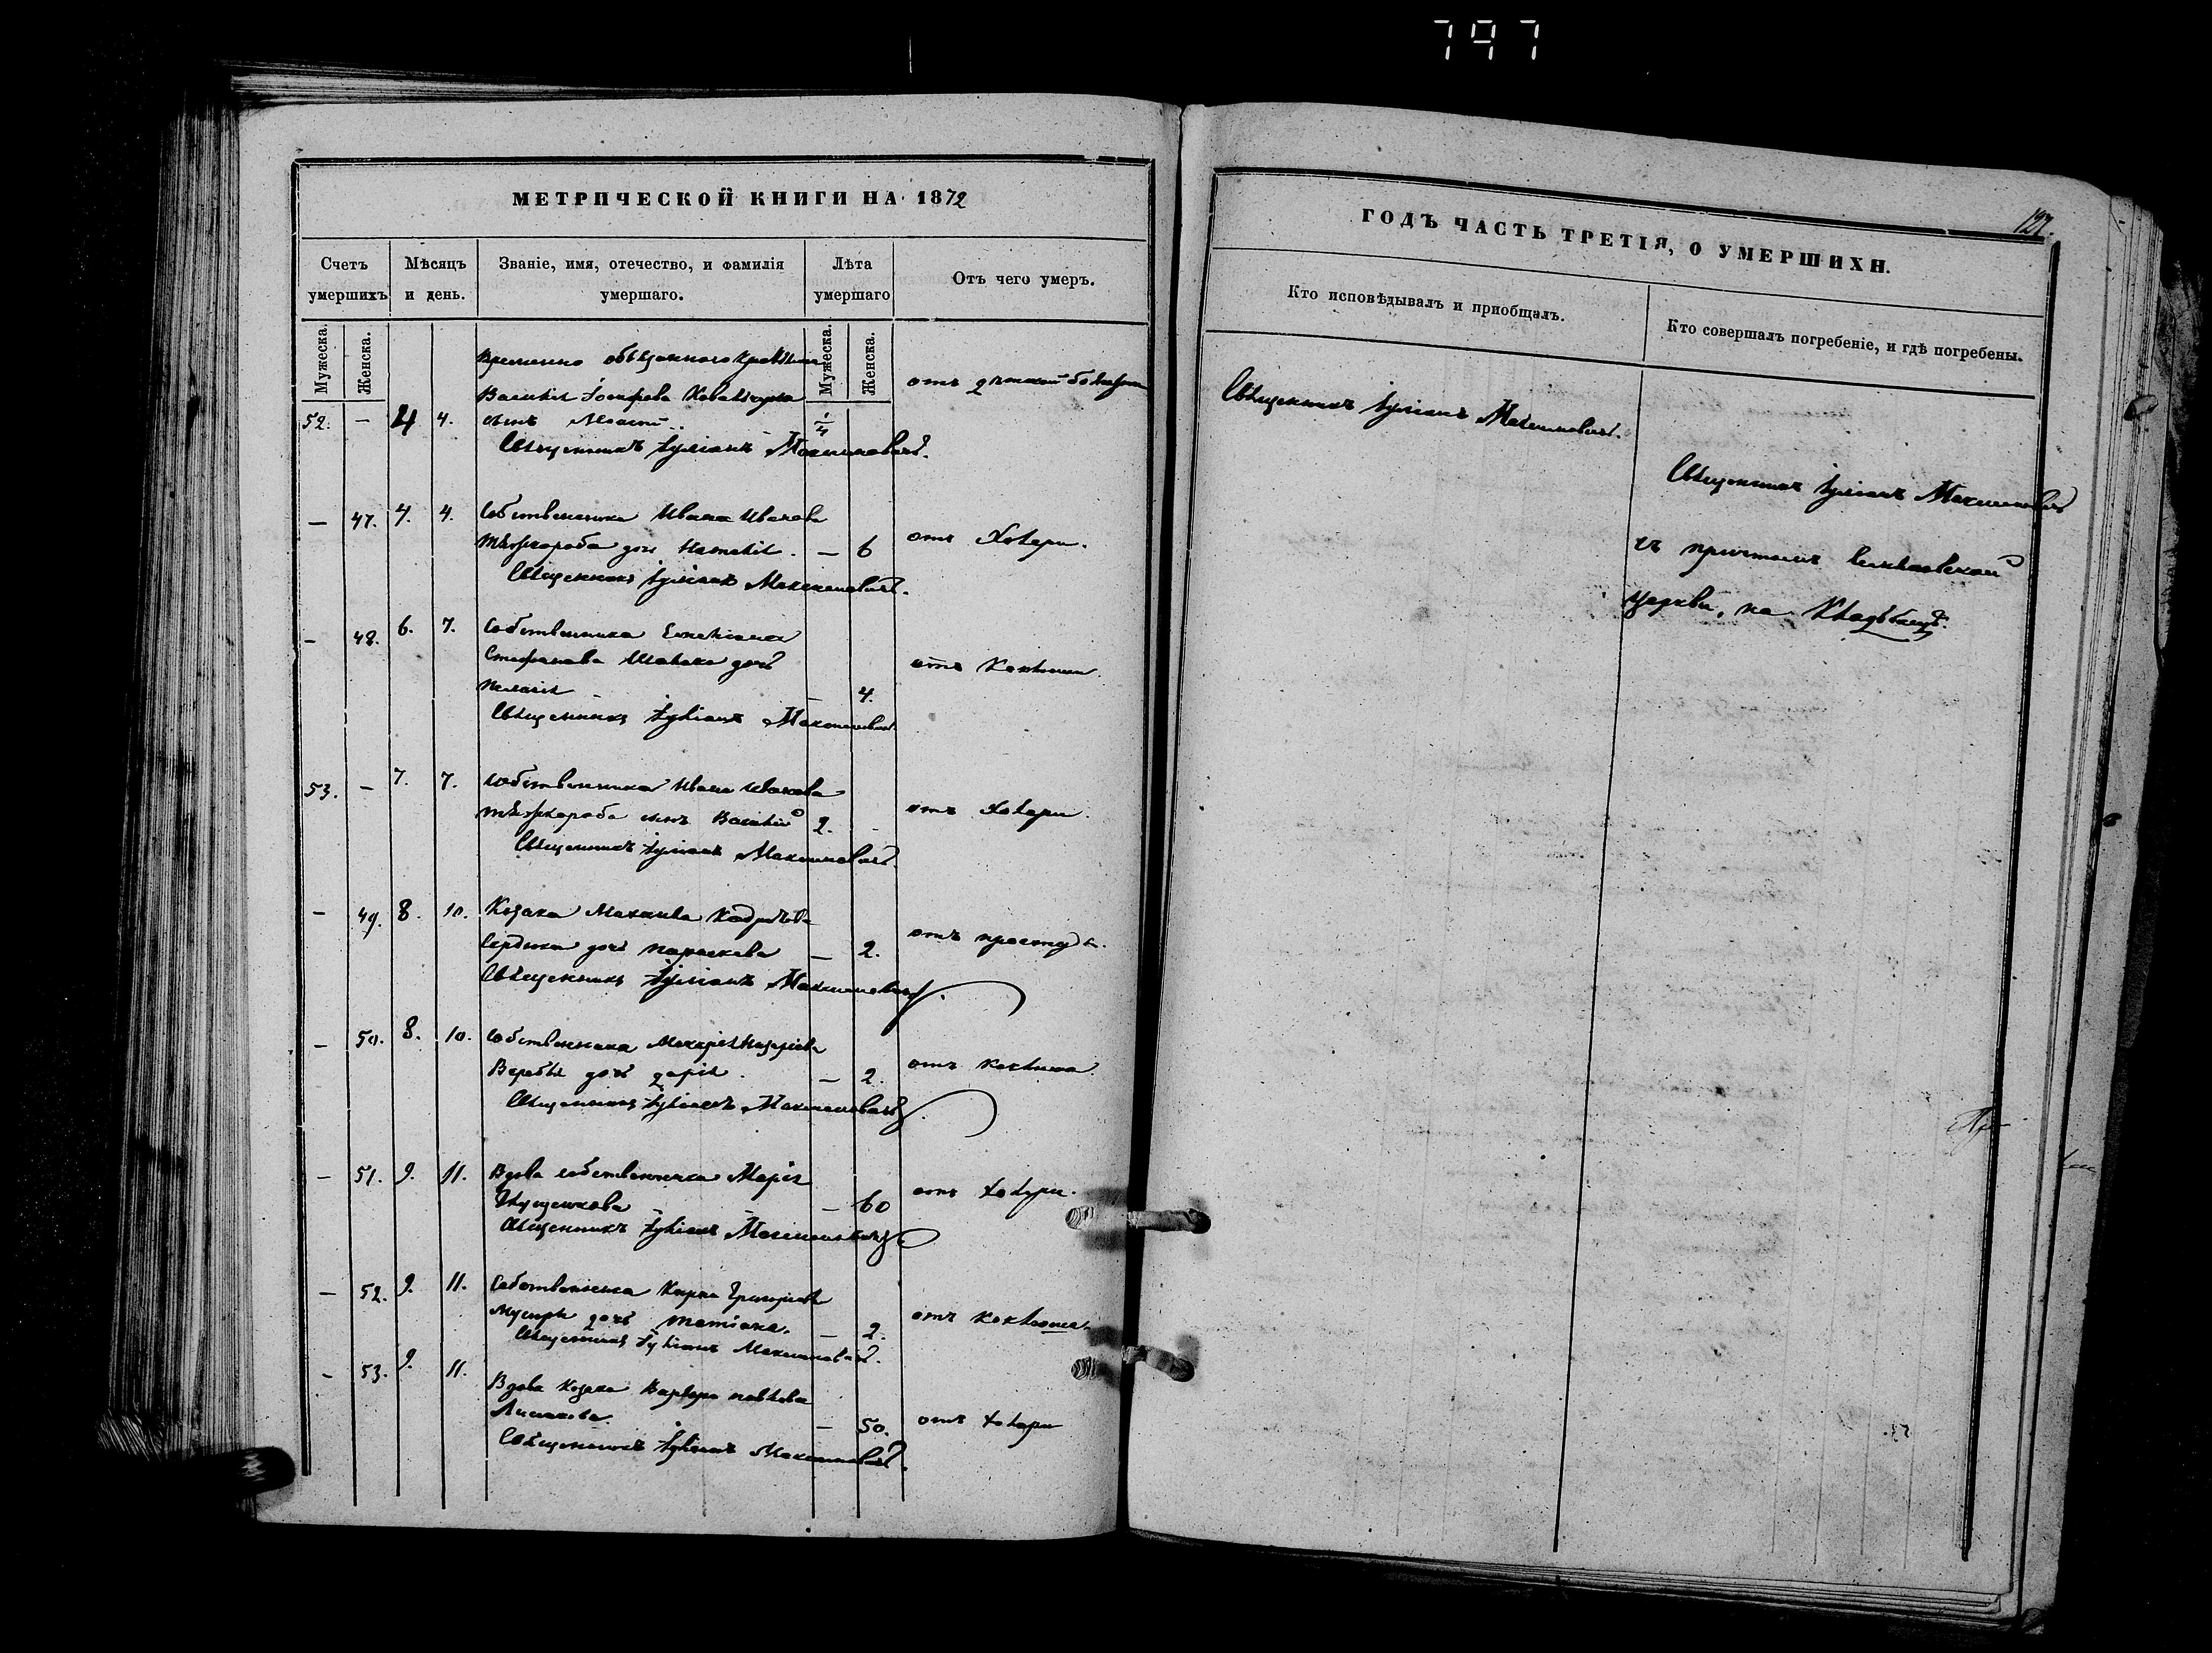 797
МЕТРИЧЕСКОЙ КНИГИ НА 1872
Счетъ умершихъ
Мѣсяцъ и день.
Званіе, имя, отечество, и фамилія умершаго.
Лѣта умершаго
Отъ чего умеръ.
Мужеска.
Женска.
Мужеска.
Женска.
Временно
Василія Іосифова Ковальчука
52. — 4 4. сынъ 1/4 отъ
Священникъ Іуліанъ Максимовичъ.
— 47. 4. 4. Собственника Ивана Иванова
дочь Наталія. — 6 отъ Холери.
Священникъ Іуліанъ Максимовичъ.
— 48. 6. 7. Собственника
Стефанова дочь
Пелагія — 4. отъ Коклюша.
Священникъ Іуліанъ Максимовичъ.
53. — 7. 7. Собственника Ивана Иванова
сынъ Василій 2. - отъ Холери.
Священникъ Іуліанъ Максимовичъ.
— 49. 8. 10. Козака
Сердюка дочь Параскева — 2. отъ простуды.
Священникъ Іуліанъ Максимовичъ.
— 50. 8. 10. Собственника Макарія Назаріева
Воробья дочь Дарія. — 2. отъ коклюша.
Священникъ Іуліанъ Максимовичъ.
— 51. 9. 11. Вдова собственника Марія
— 60 отъ холери.
Священникъ Іуліанъ Максимовичъ
— 52. 9. 11. Собственника Кирила Григоріева
дочь Татіана. — 2. отъ коклюша.
Священникъ Іуліанъ Максимовичъ.
- 53. 9. 11. Вдова Козака Варвара Павлова
— 50. отъ холери
Священникъ Іуліанъ Максимовичъ.
127.
ГОДЪ ЧАСТЬ ТРЕТІЯ, О УМЕРШИХЪ.
Кто исповѣдывалъ и пріобщалъ.
Кто совершалъ погребеніе, и гдѣ погребены.
Священникъ Іуліанъ Максимовичъ.
Священникъ Іуліанъ Максимовичъ
съ причтомъ
церкви, на Кладбищѣ.